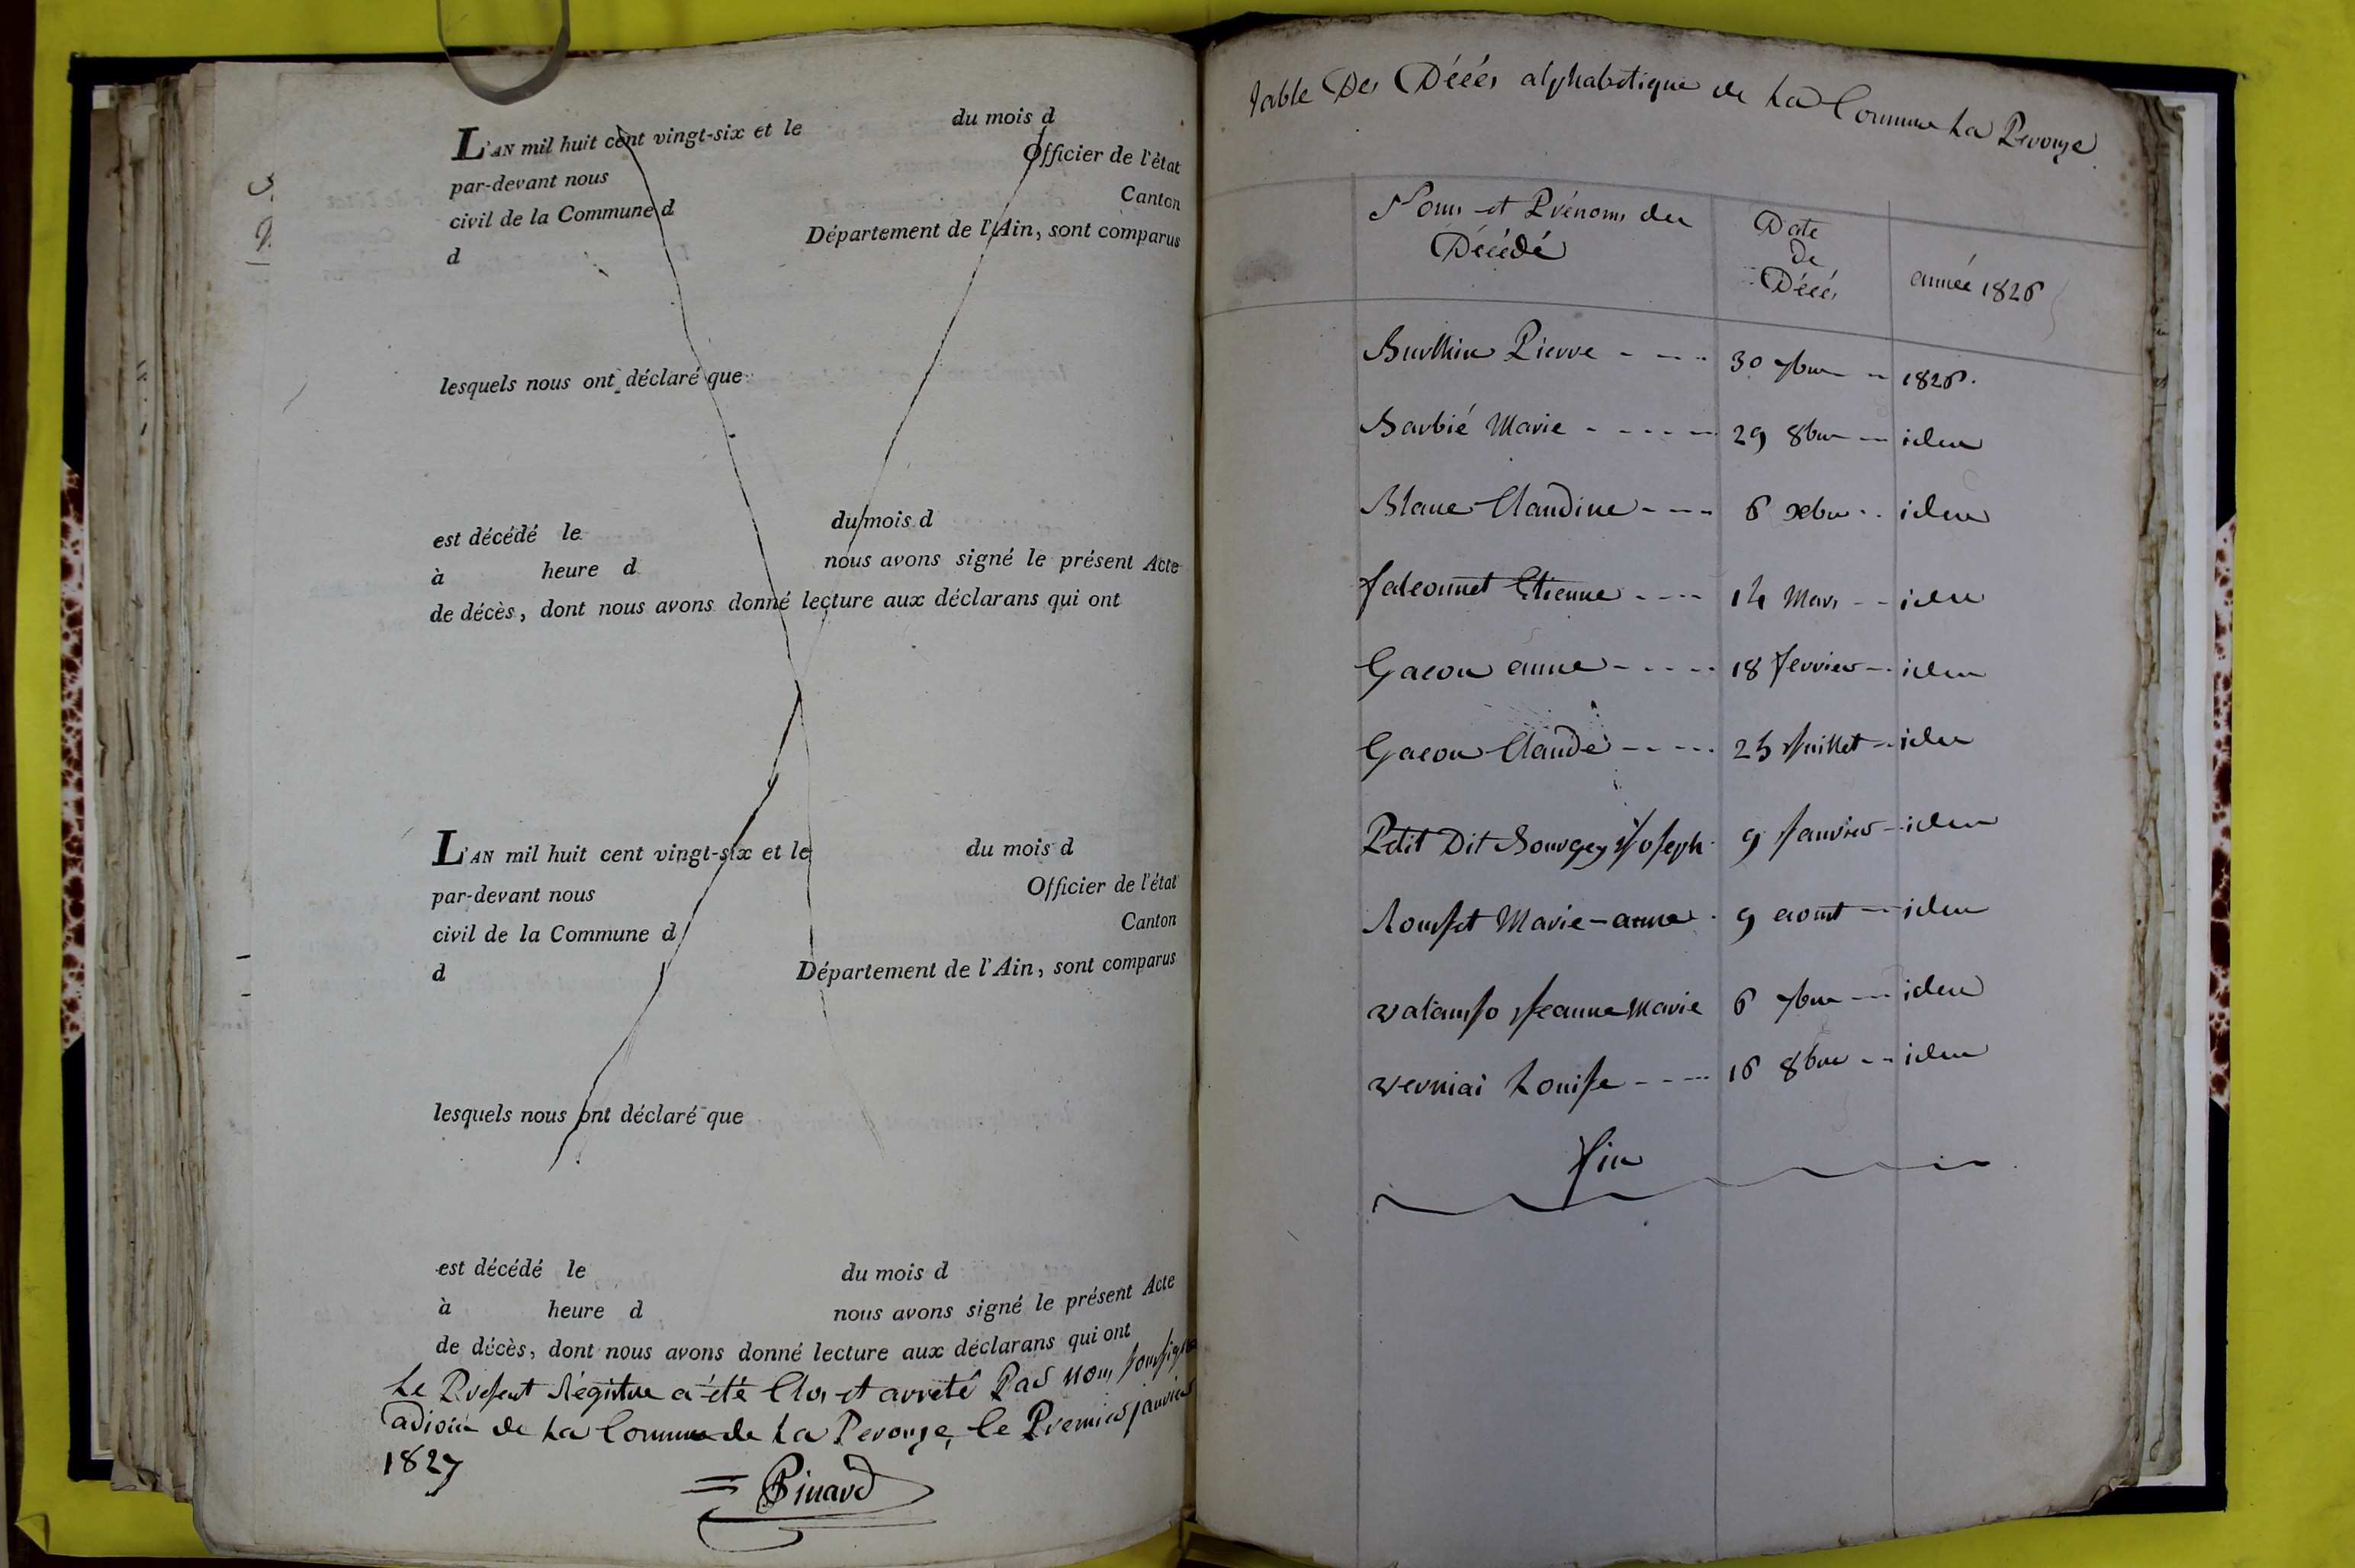 L'AN mil huit cent vingt-six et le du mois d
par-devant nous Officier de l'état
civil de la Commune d Canton
d Département de l'Ain, sont comparus
lesquels nous ont déclaré que
est décédé le du mois d
à heure d nous avons signé le présent Acte
de décès, dont nous avons donné lecture aux déclarans qui ont
L'AN mil huit cent vingt-six et le du mois d
par-devant nous Officier de l'état
civil de la Commune d Canton
d Département de l'Ain, sont comparus
lesquels nous ont déclaré que
est décédé le du mois d
à heure d nous avons signé le présent Acte
de décès, dont nous avons donné lecture aux déclarans qui ont
Le Présent Régitre a été Clos et arreté Par nous soussigné
adjoin de La Commune de La Perouze, le Premier janvier
1827
Pinard
Table Des Décés alphabetique de La Commune La Perouze
Noms et Prénoms des Date
Décédé de
Décés année 1826
Burthin Pierre - - - - 30 7bre - - 1826.
Barbié Marie - - - - - 29 8bre - - idem
Blanc Claudine - - - - 6 xbre - - idem
falconnet Etienne - - - - 14 Mars - - idem
Gacon anne - - - - - 18 fevrier - - idem
Gacon Claude - - - - - 25 Juillet - - idem
Petit Dit Bourgey Joseph 9 Janvier - idem
Rousset Marie-anne 9 aoust - - idem
Jeanne Marie 6 7bre - - - idem
verniai Louise - - - - 16 8bre - - idem
fin